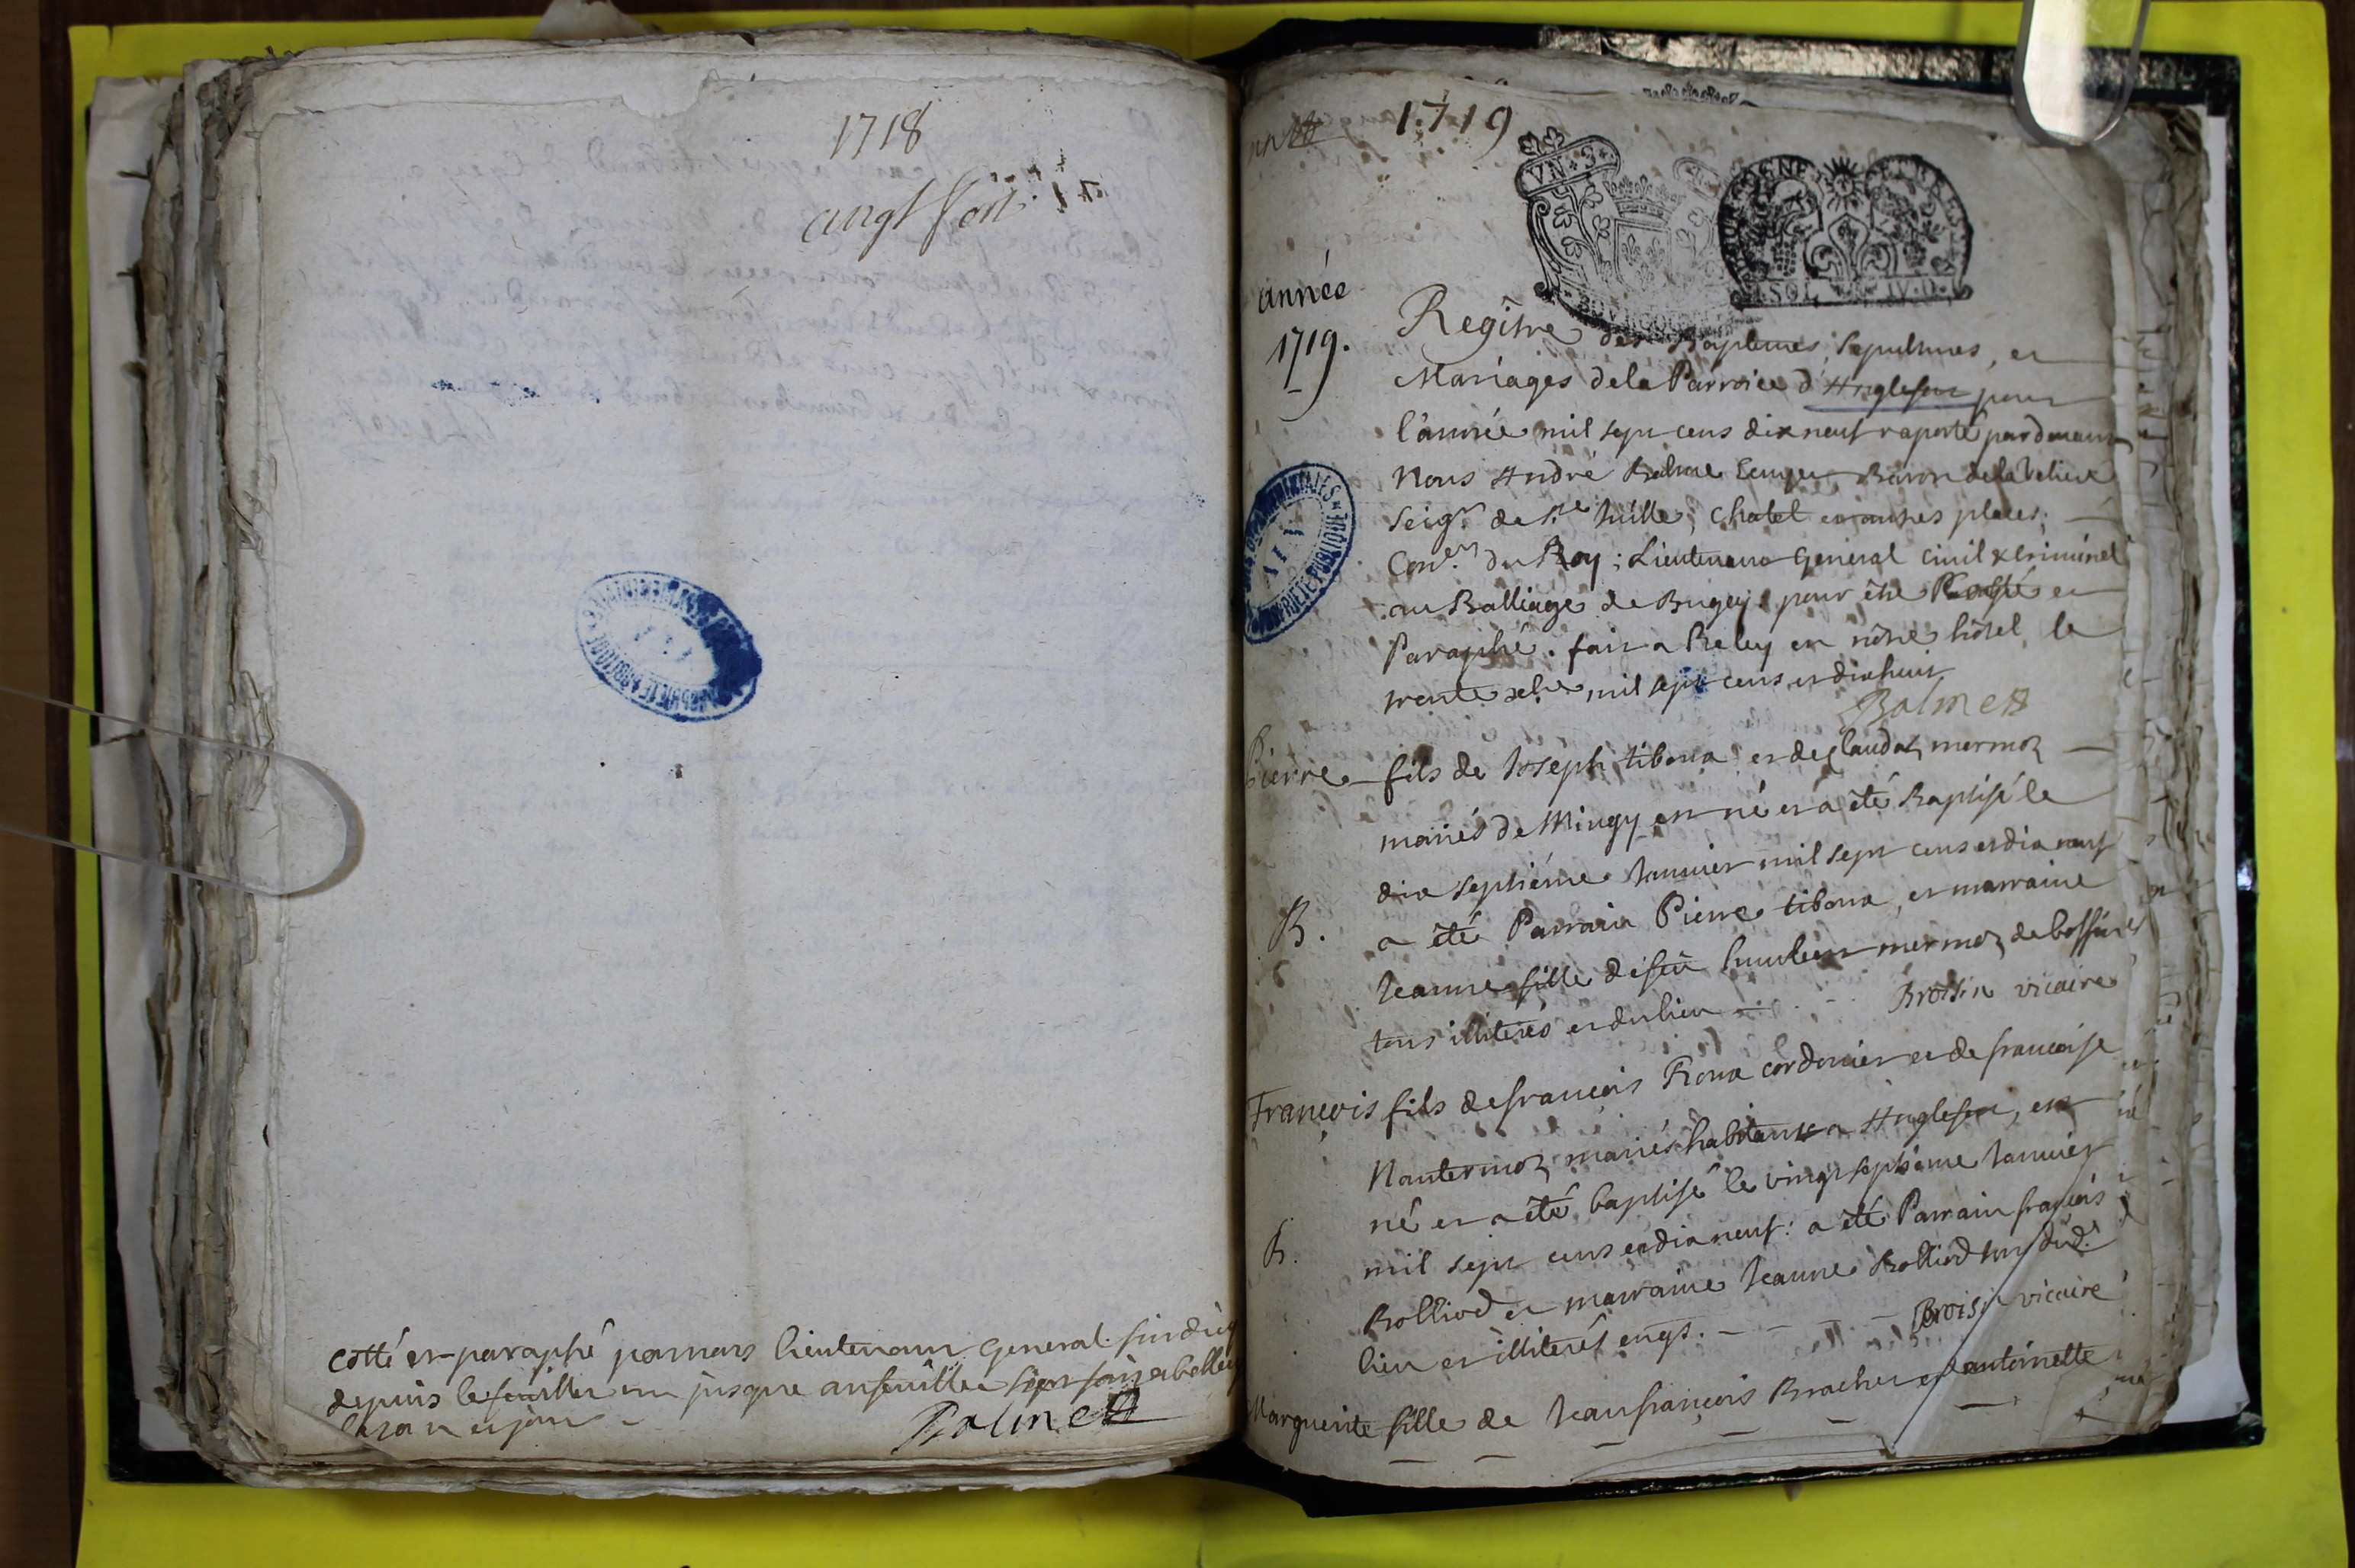 1718
vingt sept
cotté et paraphé par nous lieutenant general susdit
depuis le feuillet un jusque au feuillet sept fait a belley
les an et jour
Balme
1719
année
1719.
VN • S •
Registre des Baptemes, sepultures, et
Mariages de la Parroice d'Anglefort pour
l'année mil sept cens dix neuf raporté pardevant
Nous André Balme Ecuyer Baron de la Velieure
Seigr. de Ste Juille, Chatel et autres places,
Coner. du Roy; Lieutenant General Civil & criminel
au Balliage de Bugey pour être Cotté et
Paraphé. fait a Beley en nôtre hôtel le
trente xbre mil sept cens et dix huit
Balme
Pierre fils de Joseph tibout et de Claudaz mermoz
mariés de Mingy est né et a été Baptisé le
dix septiéme Janvier mil sept cens et dix neuf
B. a été Parrain Pierre tibout, et marraine
Jeanne fille de feu humbert mermoz
tous illiterés et du lieu Broisin vicaire
François fils de françois Roux cordonier et de francoise
Nantermoz mariés habitants a Anglefort, est
né et a été baptisé le vingt septieme Janvier
B. mil sept cens et dix neuf: a été Parrain françois
Rolliod et marraine Jeanne Rolliod tous dud.
lieu et illiterés enqs. Broisin vicaire
Marguerite fille de Jeanfrançois Brachet et d'antoinette